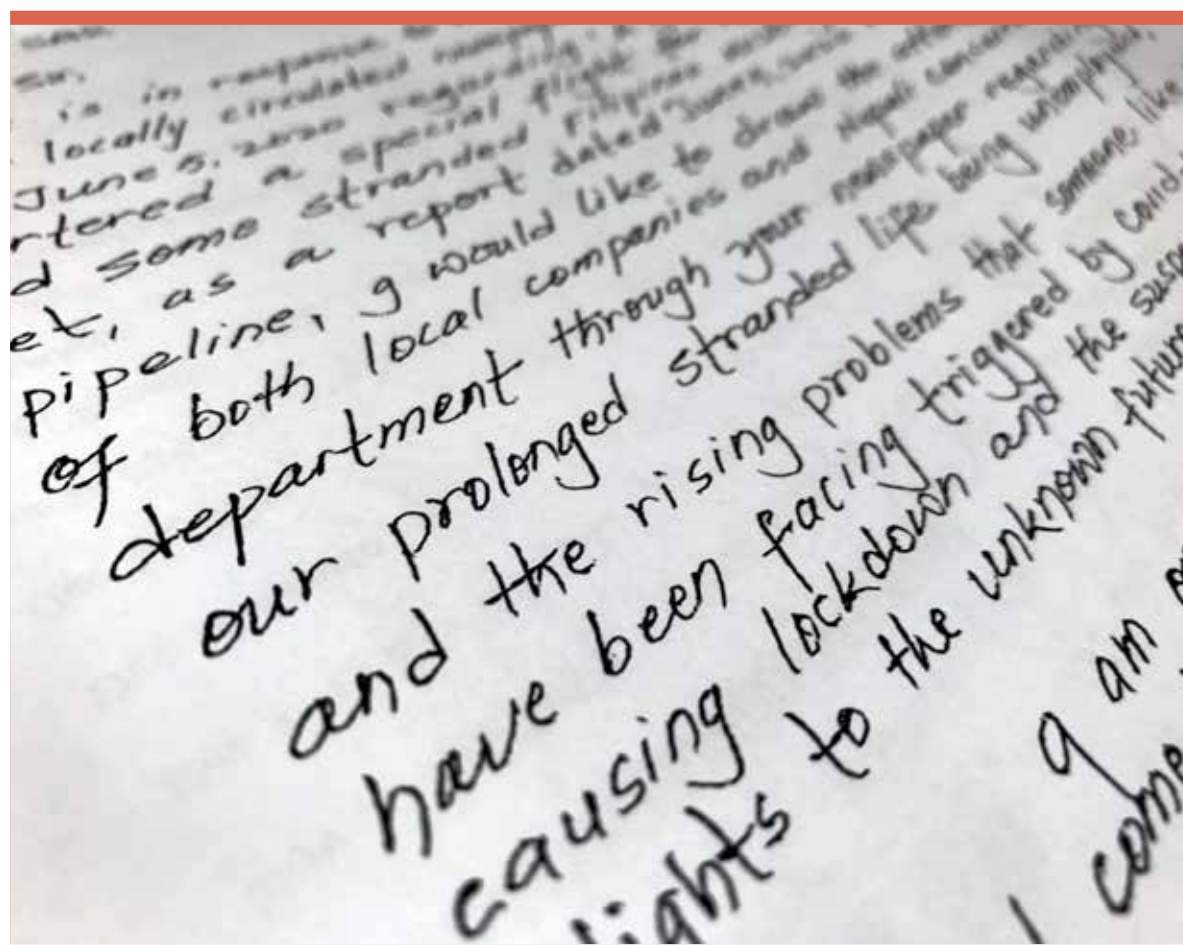 Sir,
is in response
locally circulated
June 5, 2020 regarding
rtered a special flight for
d some stranded Filipinos
et, as a report dated June
pipeline, I would like to draw the
of both local companies and Nepali
department through your newspaper regarding
our prolonged stranded life being unemployed,
and the rising problems that someone like
have been facing triggered by covid
causing lockdown and the susp
lights to the unknown future
I am
come